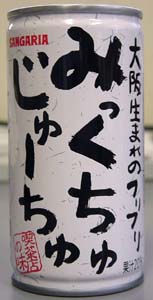 SANGARIA
大阪生まれのフリフリ
みっくちゅ
じゅーちゅ
喫茶店
の味